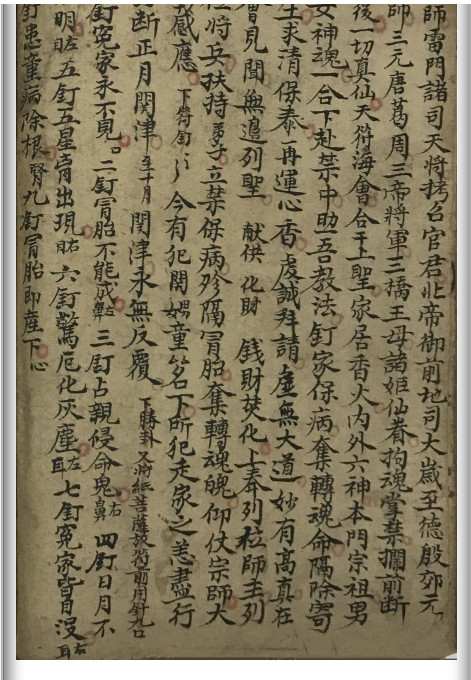 師雷門諸司天將拷召官君北帝御前地司大歲至德殷郊元
師三元唐葛周三帝將軍三橋王母諸姬仙眷拘魂掌禁攔前断
後一切真仙天符海會合干上聖家居香火内外六神本門宗祖男
女神魂一合下赴禁中助吾教法釘家保病奪轉魂命隔除寄
生求清保泰再運心香虔誠拜請虛無大道妙有高真在
曾見聞無邉列聖 献供 化財 錢財焚化上奉列位師主列
將兵扶持弟子立禁保病殄隔冐胎奪轉魂魄仰仗宗師大
感應 下符釘 今有犯関 童 名下所犯走家之恙盡行
断正月関津至十月関津永無反覆 下勝卦 又將紙菩薩放符前用針九口
釘寃家永不見 二釘冐胎不能成 三釘占親侵命鬼右鼻 四釘日月不
明左 五釘五星齊出現右 六釘驚厄化灰塵左耳 七釘寃家皆自沒右耳
釘患童病除根腎九釘冐胎即産下心